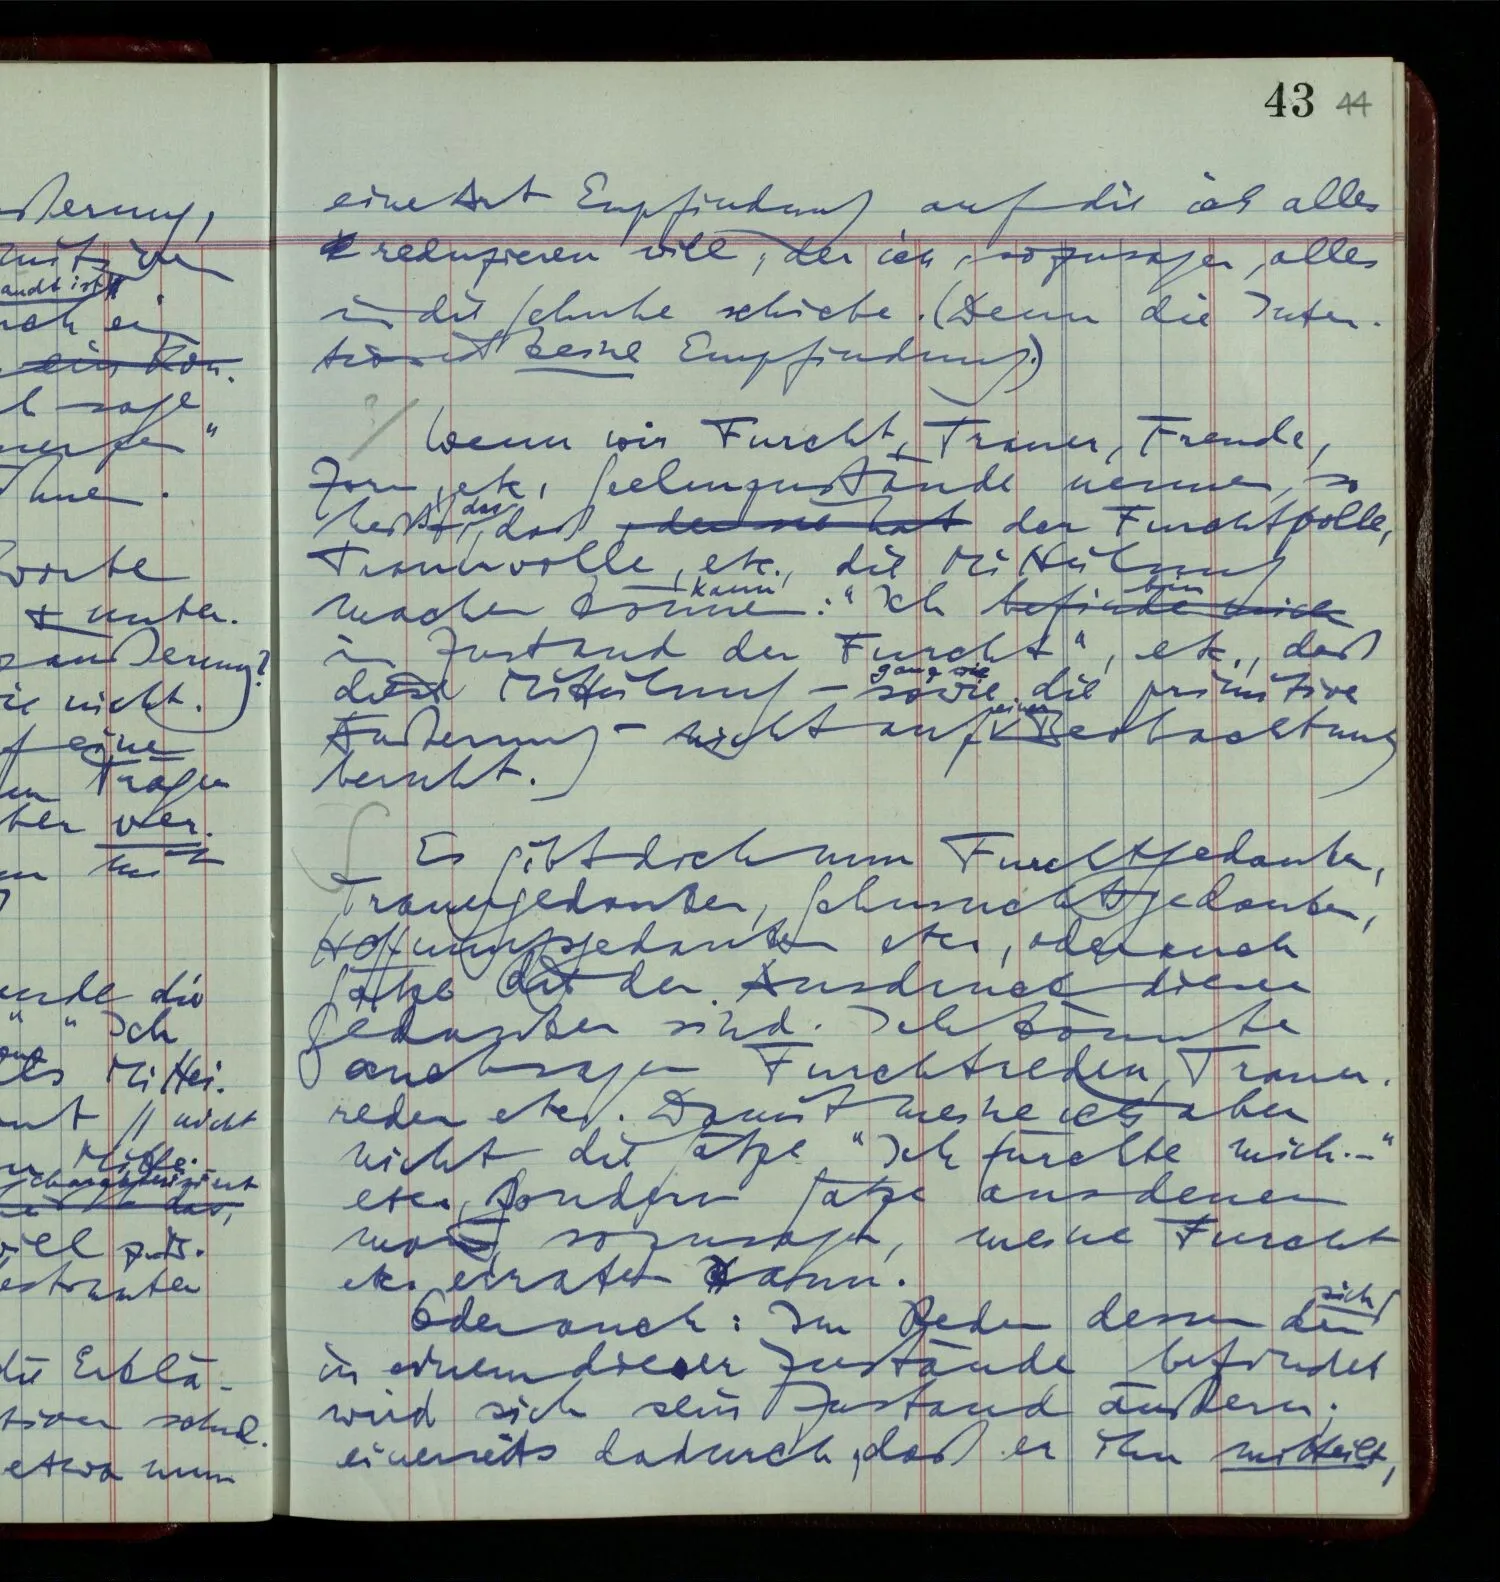 43 44
eine Art Empfindung auf die ich alles
reduzieren will, der ich, sozusagen, alles
in die Schuhe schiebe. (Denn die Inten-
tion ist keine Empfindung.)
Wenn wir Furcht, Trauer, Freude,
Zorn, etc, Seelenzustände nennen, so
heißt das, daß der Furchtvolle,
Trauervolle, etc., die Mitteilung
kann
machen könne: "Ich befinde mich
bin
im Zustand der Furcht", etc., daß
ganz wie
diese Mitteilung – sowie die primitive
einer
Äußerung – nicht auf Beobachtung
beruht.
Es gibt doch nun Furchtgedanken,
Trauergedanken, Sehnsuchtsgedanken,
Hoffnungsgedanken etc., oder auch
Sätze die der Ausdruck dieser
Gedanken sind. Ich könnte
auch sagen Furchtreden, Trauer-
reden etc. Damit meine ich aber
nicht die Sätze "Ich fürchte mich.–"
etc., sondern Sätze aus denen
man, sozusagen, meine Furcht
etc. erraten kann.
Oder auch: Im Reden dessen der
sich
in einem dieser Zustände befindet
wird sich sein Zustand äußern;
einerseits dadurch, daß er ihn mitteilt,
ßerung,
ein Kon-
sage
Worte
+ unter-
nicht.
eine
Tragen
ver-
Ich
Mittei-
nicht
die Erklä-
etwa nun